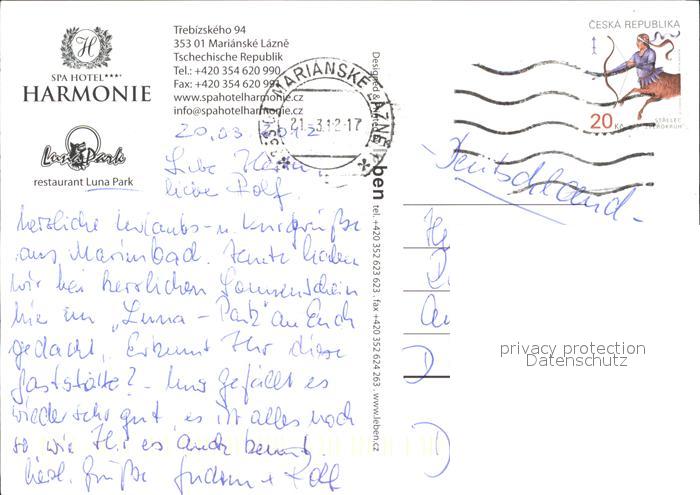 H
SPA HOTEL****
HARMONIE
Luna Park
restaurant Luna Park
Třebízského 94
353 01 Mariánské Lázně
Tschechische Republik
Tel.: +420 354 620 990
Fax: +420 354 620 99
www.spahotelharmonie.cz
info@spahotelharmonie.cz
MARIÁNSKÉ LÁZNĚ
21.-3.12-17
ČESKÁ REPUBLIKA
20 Kč
STŘELEC
ZVĚROKRUH
Designed &
ben tel. +420 352 623 623, fax +420 352 624 263, www.leben.cz
20.03.
Liebe
liebe Rolf.
herzliche Urlaubs- u. Kurgrüße
aus Marienbad. Heute haben
wir bei herrlichen Sonnenschein
hier im „Luna-Park" an Euch
gedacht. Erkennt Ihr diese
Gaststätte? - Uns gefällt es
wieder sehr gut, es ist alles noch
so, wie Ihr es auch kennt.
Herzl. Grüße + Rolf
Deutschland-
privacy protection
Datenschutz